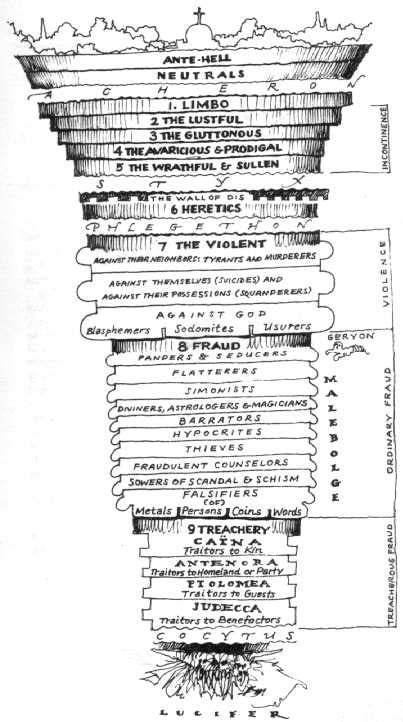 ANTE-HELL
NEUTRALS
ACHERON
1. LIMBO
2 THE LUSTFUL
3 THE GLUTTONOUS
4 THE AVARICIOUS & PRODIGAL
5 THE WRATHFUL & SULLEN
INCONTINENCE
STYX
THE WALL OF DIS
6 HERETICS
PHLEGETHON
7 THE VIOLENT
AGAINST THEIR NEIGHBORS: TYRANTS AND MURDERERS
AGAINST THEMSELVES (SUICIDES) AND
AGAINST THEIR POSSESSIONS (SQUANDERERS)
AGAINST GOD
Blasphemers Sodomites Usurers
VIOLENCE
GERYON
8 FRAUD
PANDERS & SEDUCERS
FLATTERERS
SIMONISTS
DIVINERS, ASTROLOGERS & MAGICIANS
BARRATORS
HYPOCRITES
THIEVES
FRAUDULENT COUNSELORS
SOWERS OF SCANDAL & SCHISM
FALSIFIERS
(OF)
Metals Persons Coins Words
MALEBOLGE
ORDINARY FRAUD
9 TREACHERY
CAÏNA
Traitors to Kin
ANTENORA
Traitors to Homeland or Party
PTOLOMEA
Traitors to Guests
JUDECCA
Traitors to Benefactors
TREACHEROUS FRAUD
COCYTUS
LUCIFER